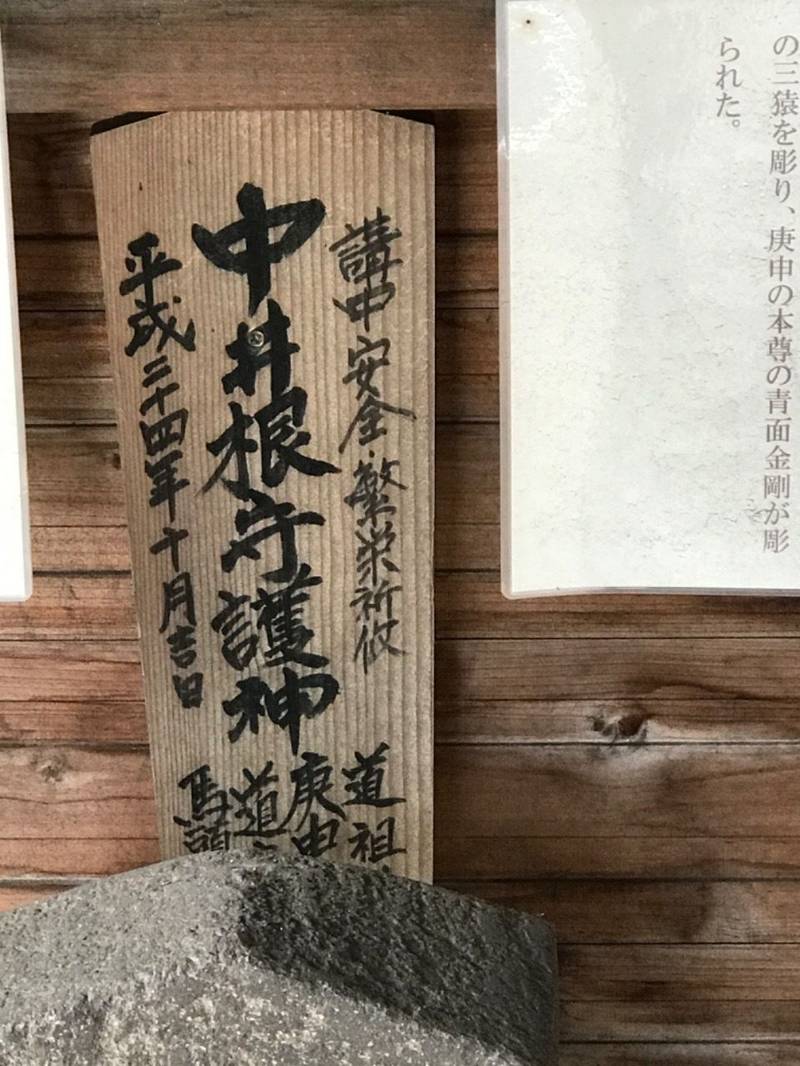 の三猿を彫り、庚申の本尊の青面金剛が彫
られた。
講中安全・繁栄祈攸
中井根守護神
平成二十四年十月吉日
道祖
庚申
道
馬頭